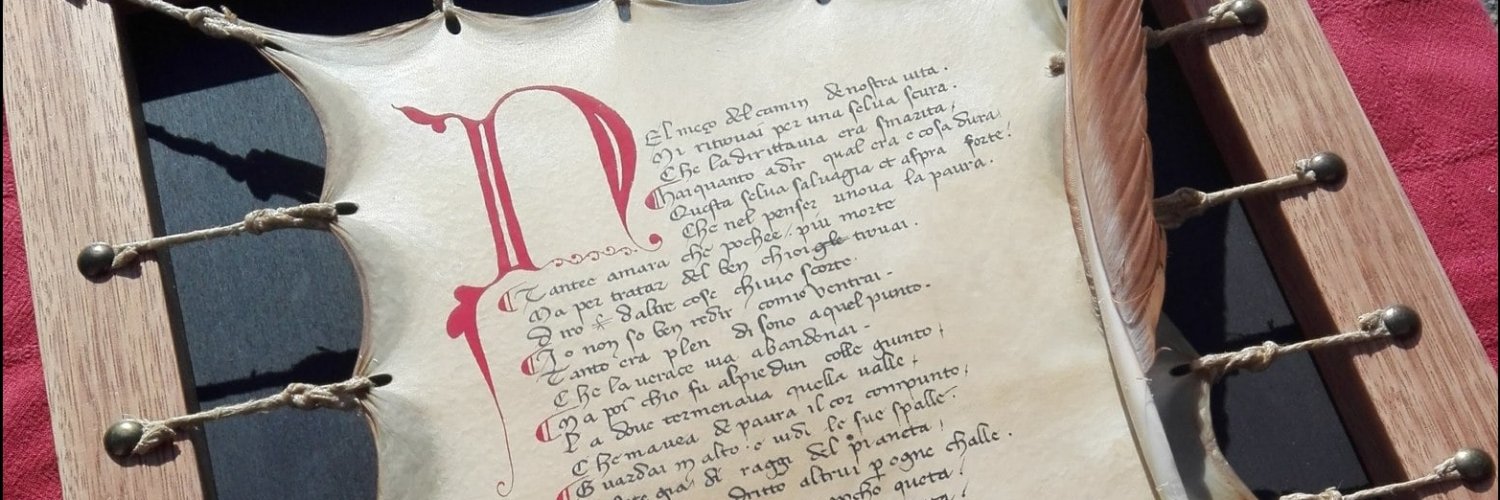 NEl meço del camin de nostra uita.
Mi ritrouai per una selua scura.
Che ladirittauia era smarita,
Haiquanto adir qual era e cosa dura
Questa selua saluagia et aspra forte!
Che nel penser rinoua la paura.
Tantee amara che pochee, più morte
Ma per tratar del ben chioigle trouai.
Diro dalltre cose chiuio scorte.
Io non so ben redir, comio ventrai.
Tanto era plen disono aquel punto.
Che la uerace uia abandonai.
Ma poi chio fu alpiedun colle giunto,
La doue termenaua quella ualle,
Chemauea de paura il cor compunto,
Guardai in alto. e uidi le sue spalle.
gia di raggi del pianeta,
dritto altrui p ogne challe.
queta,